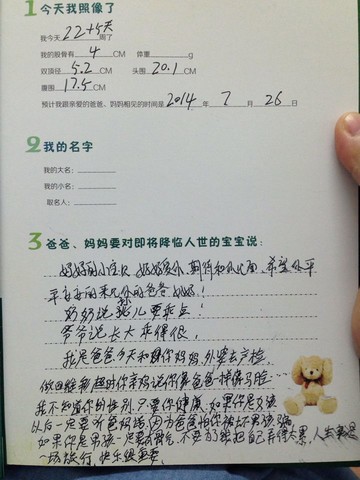 1 今天我照像了
我今天 22+5天 周了
我的股骨有 4 CM 体重 g
双顶径 5.2 CM 头围 20.1 CM
腹围 17.5 CM
预计我跟亲爱的爸爸、妈妈相见的时间是 2014 年 7 月 26 日
2 我的名字
我的大名:
我的小名:
取名人:
3 爸爸、妈妈要对即将降临人世的宝宝说:
好好的 希望你平
平安安的来见你的爸爸妈妈!
奶奶说 儿要乖点!
爷爷说长大乖得很,
我是爸爸今天和 你妈妈,外婆去产检,
做 你亲妈说你像爸爸一样像马脸
我不知道你的性别,只要你健康,如果你是女孩
以后一定要听爸妈话,因为爸爸怕你被坏男孩骗,
如果你是男孩一定要 不要 把自己弄得太累,人生就是
一场旅行,快乐很重要.